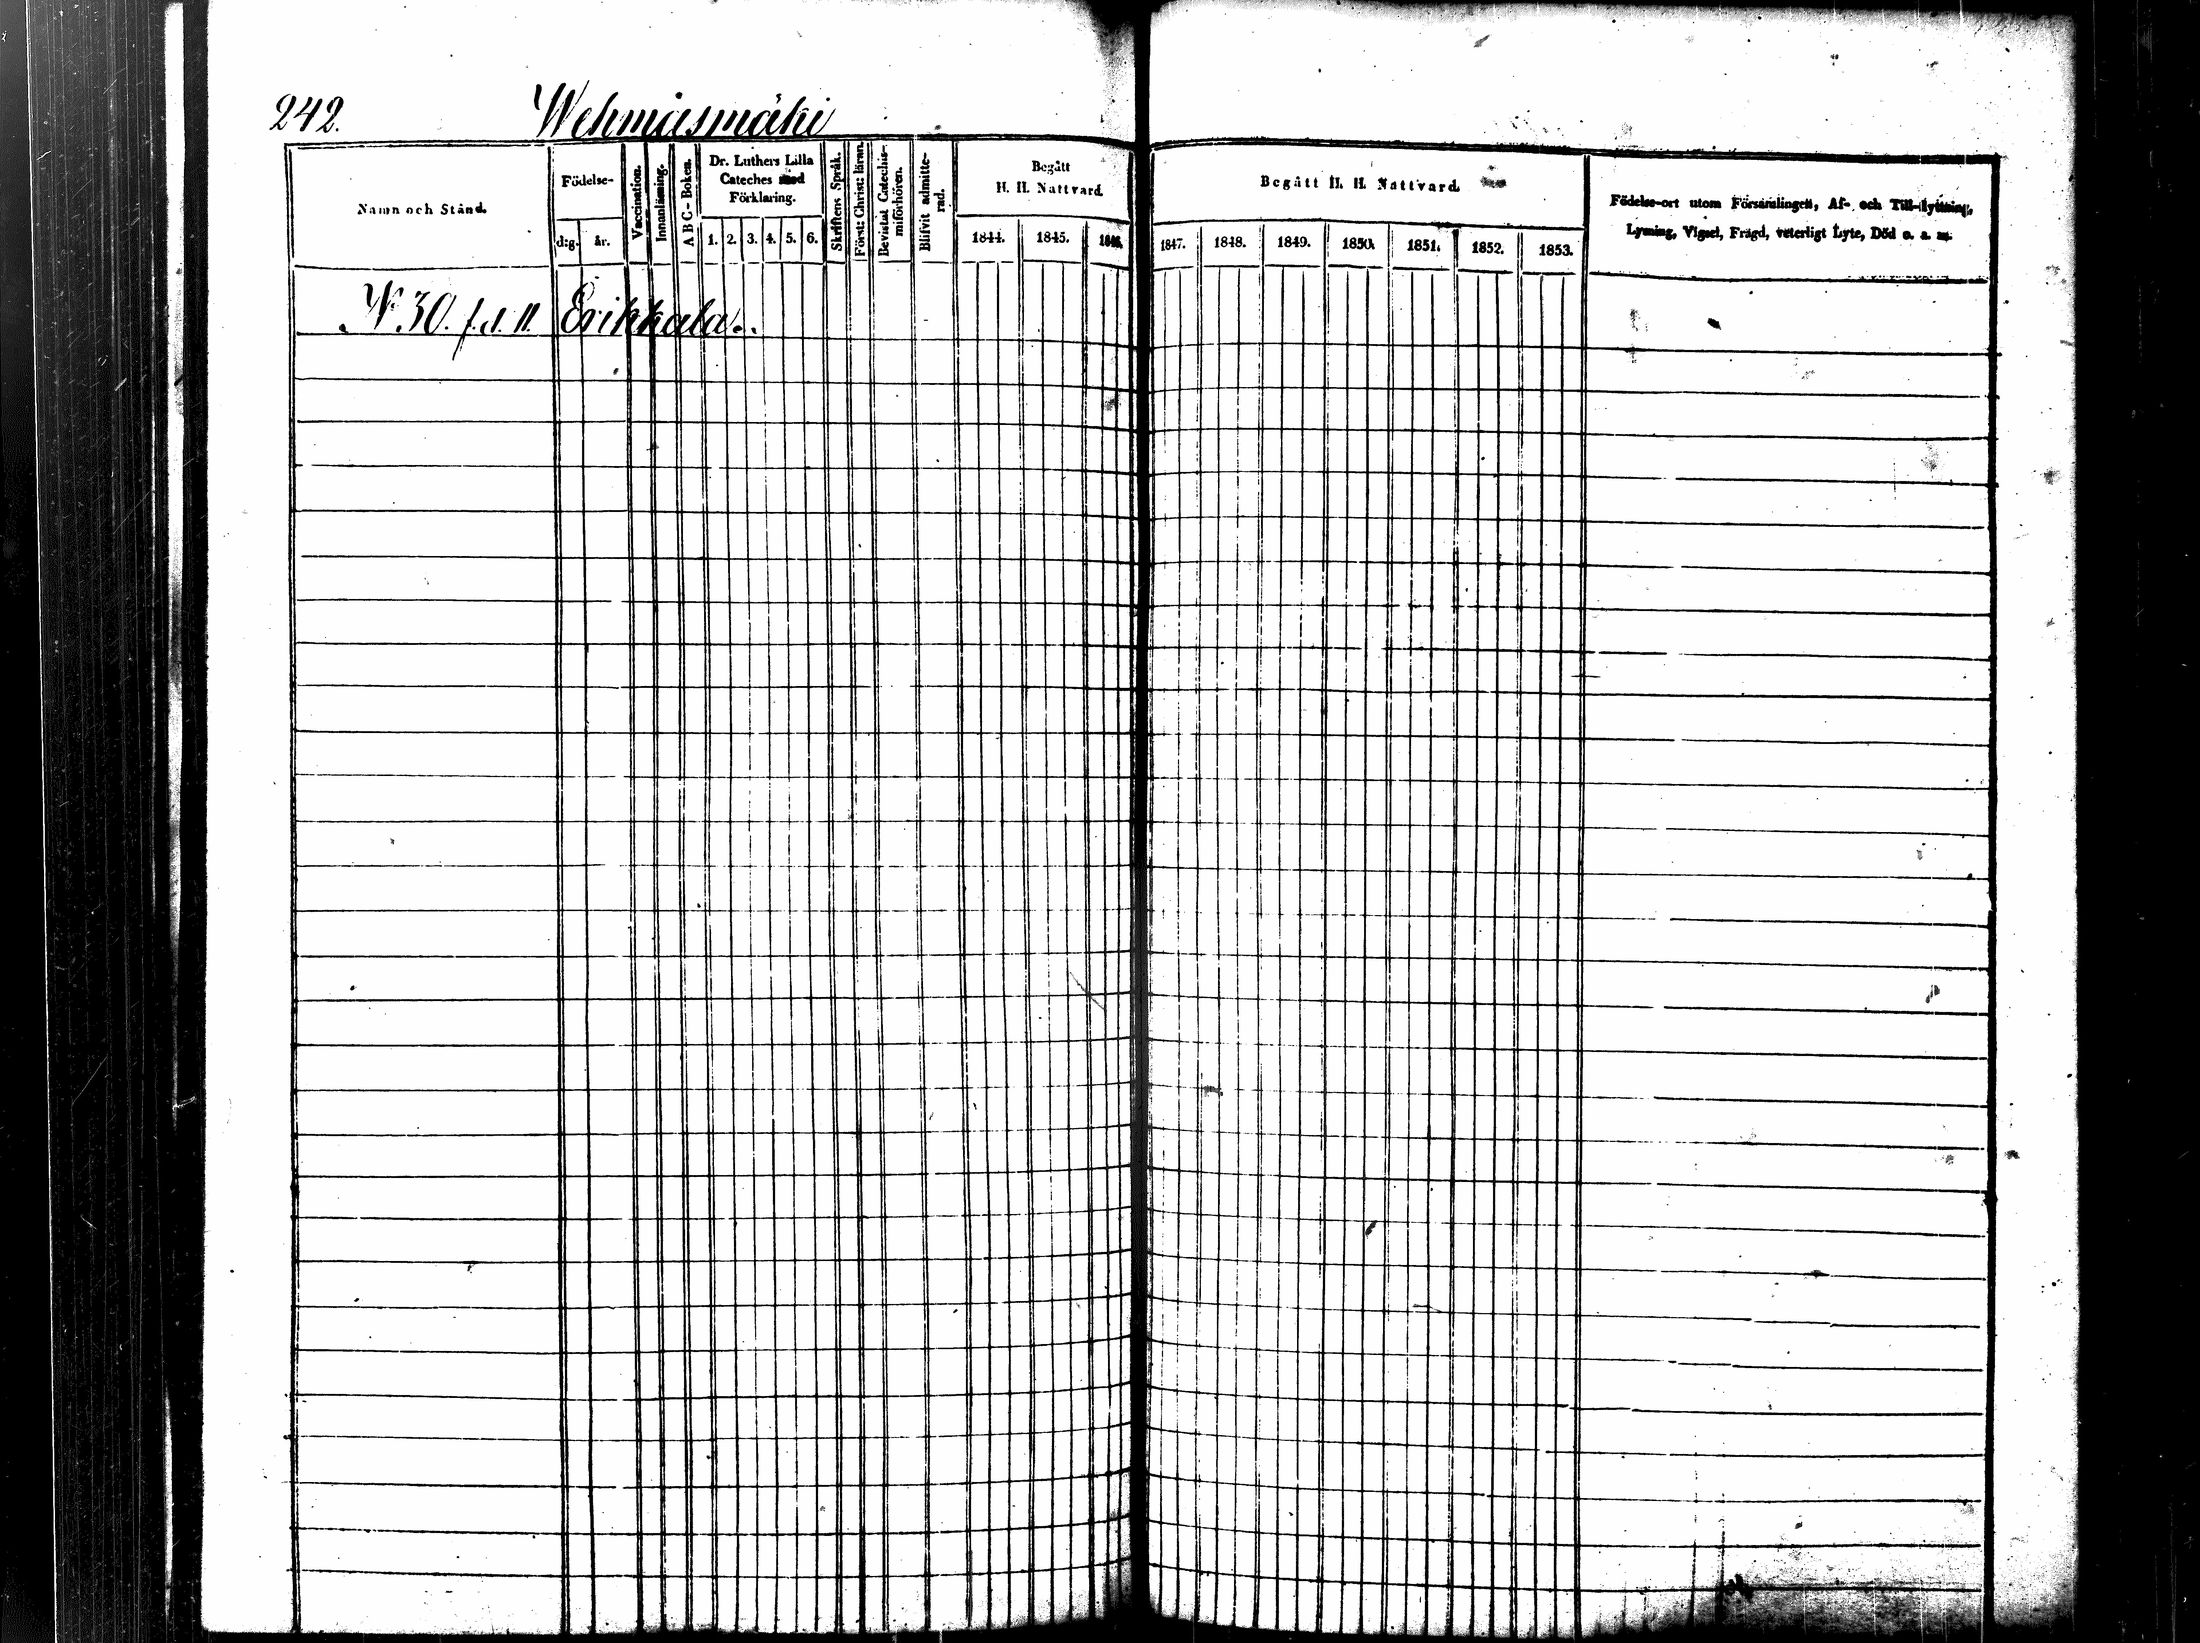 242. Wehmäsmäki
Namn och Stånd.
Födelse-
d:g. år.
Vaccination.
Innanläsning.
A B C - Boken.
Dr. Luthers Lilla
Cateches med
Förklaring.
1. 2. 3. 4. 5. 6.
Skriftens Språk.
Först: Christ: läran.
Bevistat Catechis-
miförhören.
Blifvit admitte-
rad.
Begått
H. H. Nattvard.
1844. 1845. 1846.
Begått H. H. Nattvard.
1847. 1848. 1849. 1850. 1851. 1852. 1853.
Födelse-ort utom Församlingen, Af- och Till-flyttning,
Lysning, Vigsel, Frägd, veterligt Lyte, Död o. a. m.
N 30. Erikkala.